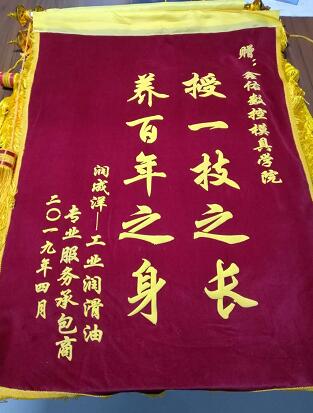 赠：鑫佑数控模具学院
授一技之长
养百年之身
润成洋—工业润滑油
专业服务承包商
二〇一九年四月